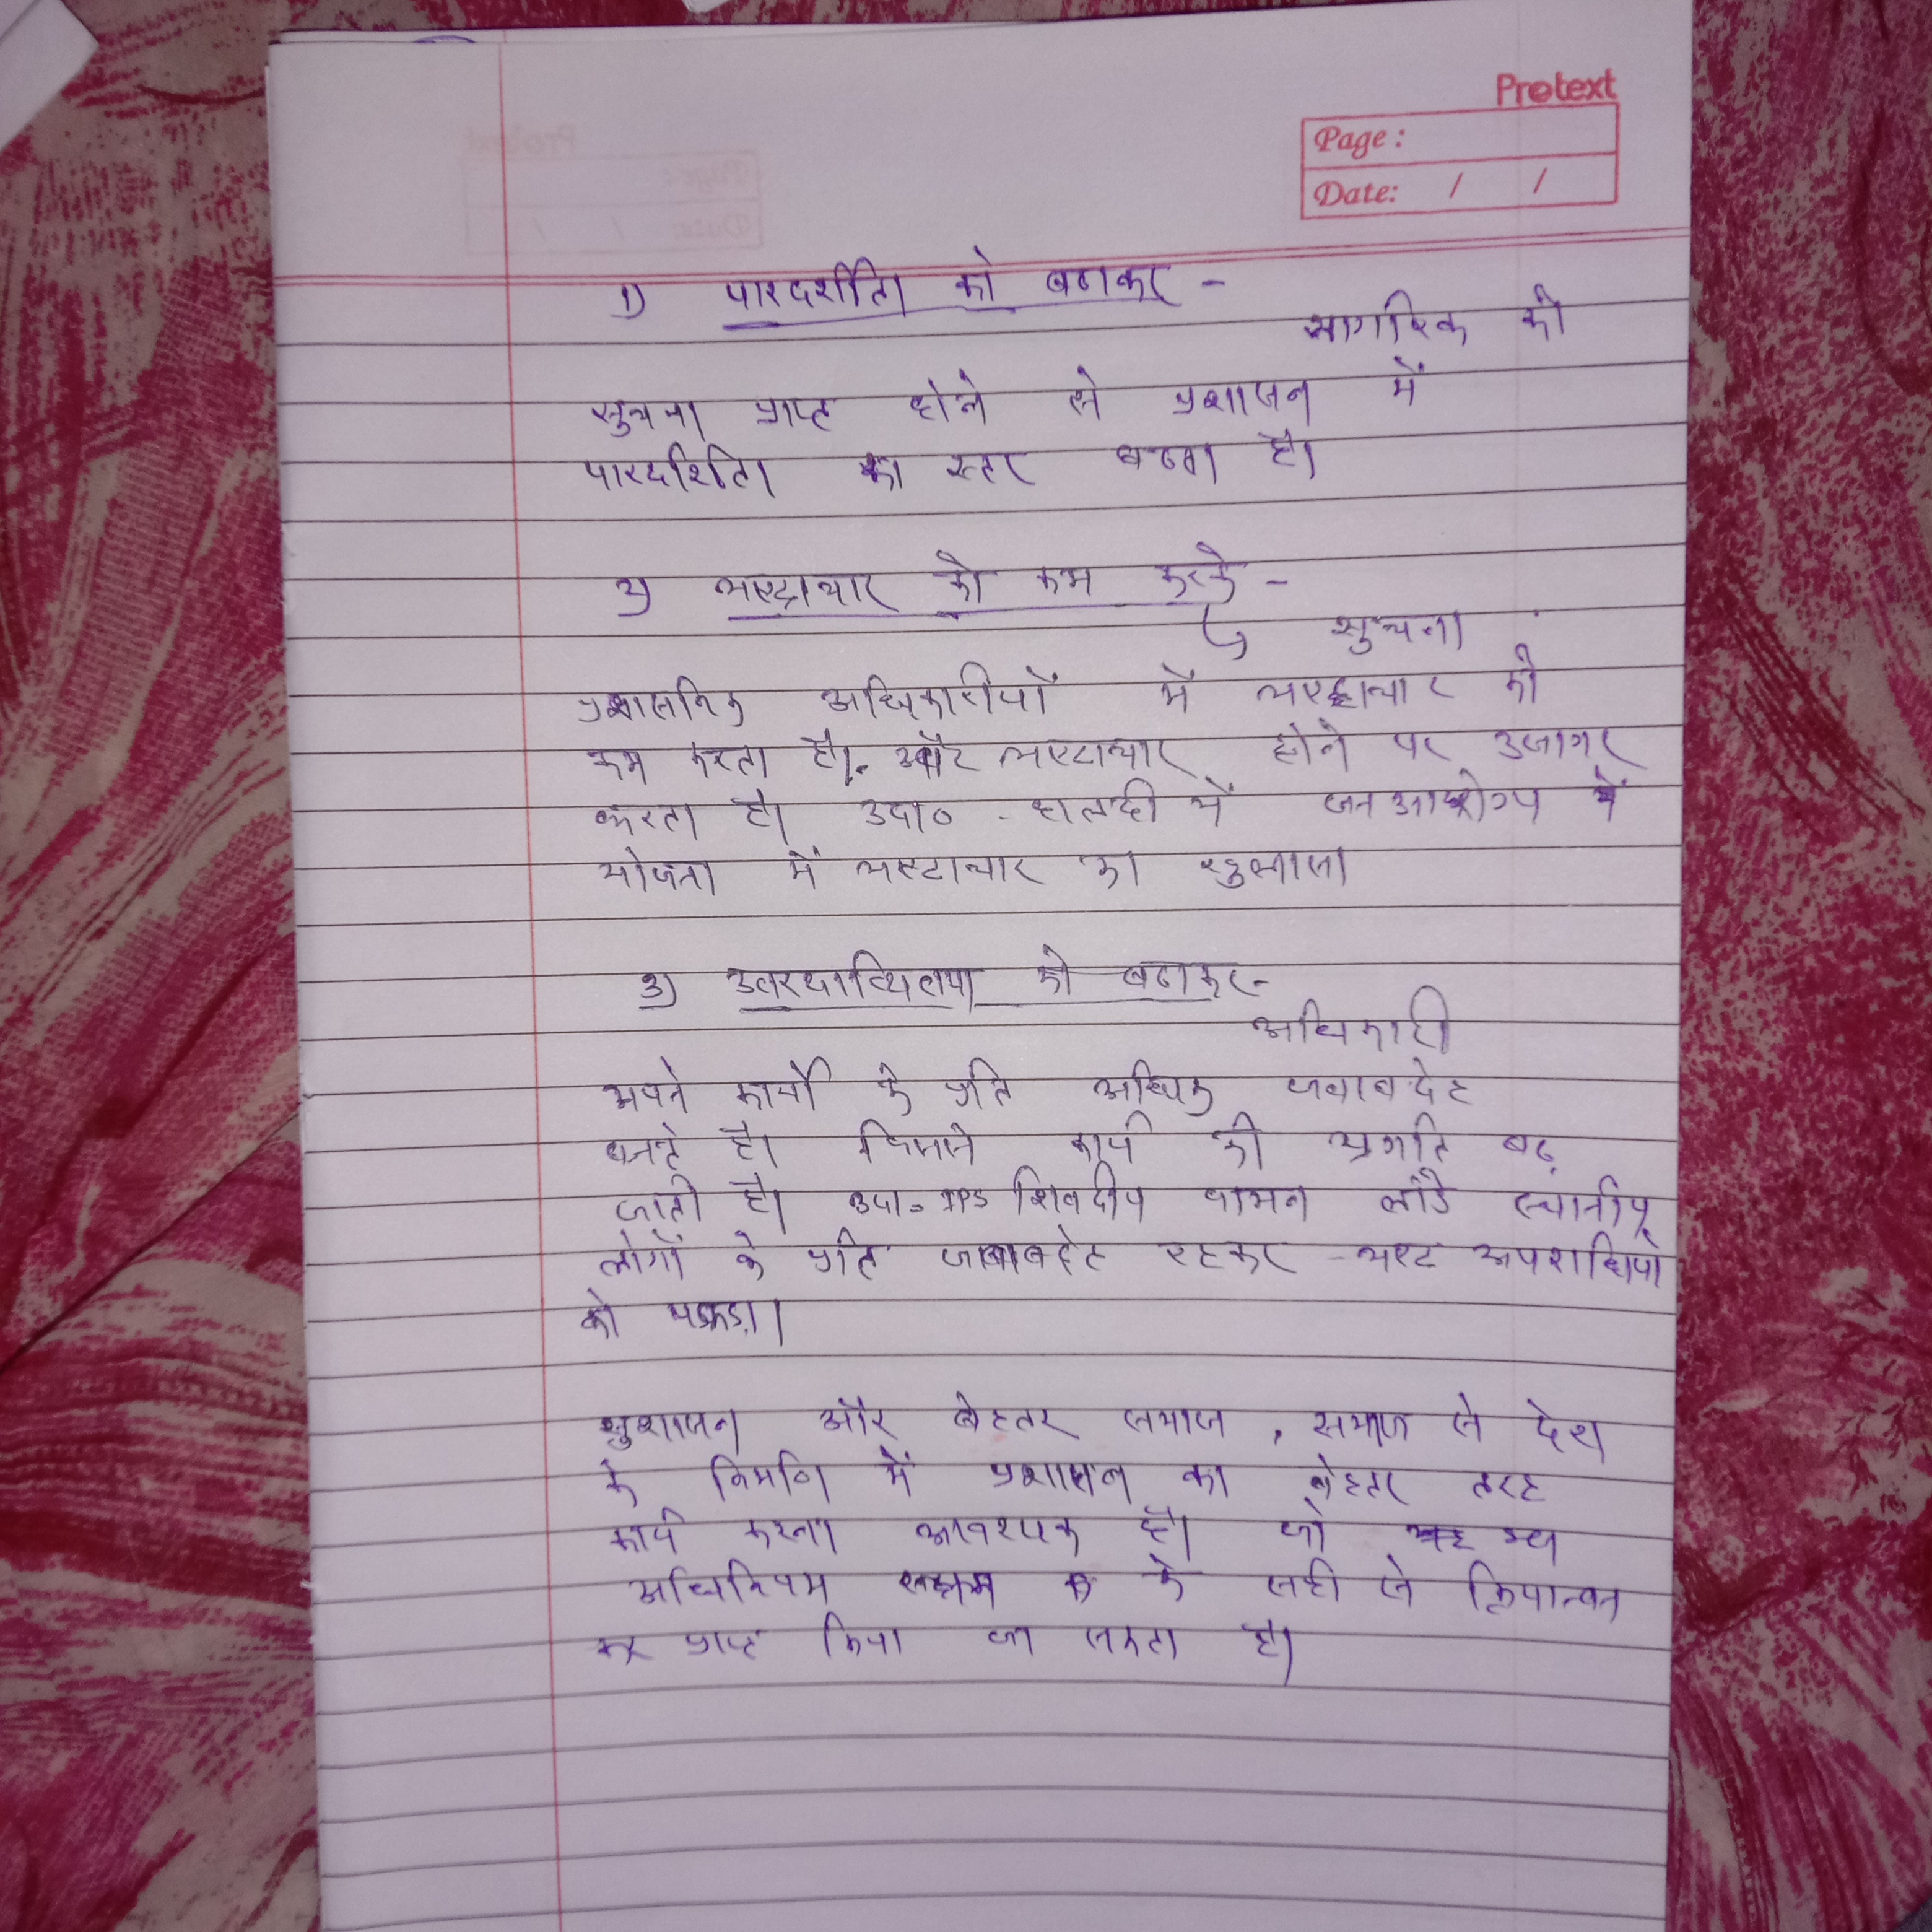 Protext
Page :
Date: / /
1) पारदर्शीता को बढाकर -
नागरिक को
सुचना प्राप्त होने से प्रशासन में
पारदर्शिता का स्तर बढता है।
2) भष्ट्राचार को कम करके -
सुचना
प्रशासनिक अधिकारीयों में भष्ट्राचार को
कम करता है। और भष्टाचार होने पर उजागर
करता है। उदा० - हालही में जन आरोग्य
योजना में भष्टाचार का खुलासा
3) को बढाकर -
अधिकारी
अपने कार्यों के प्रति अधिक जवाबदेह
बनते है। जिससे कार्य की प्रगति बढ़
जाती है। उदा॰ IPS शिवदीप वामन लांडे स्थानीय
लोगों के प्रति जवाबदेह रहकर भष्ट अपराधियों
को पकडा।
सुशासन और बेहतर समाज, समाज से देश
के निर्माण में प्रशासन का बेहतर तरह
कार्य करना आवश्यक है। जो
अधिनियम के सही से क्रियान्वन
कर प्राप्त किया जा सकता है।